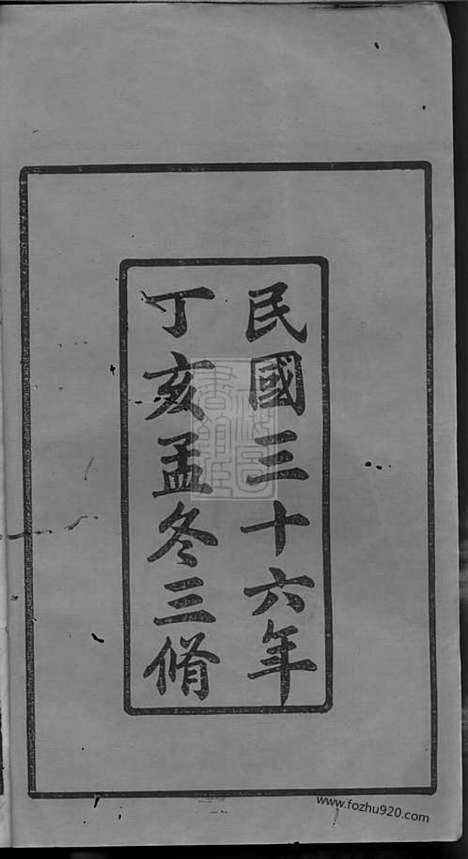 民國三十六年
丁亥孟冬三脩
www.fozhu920.com